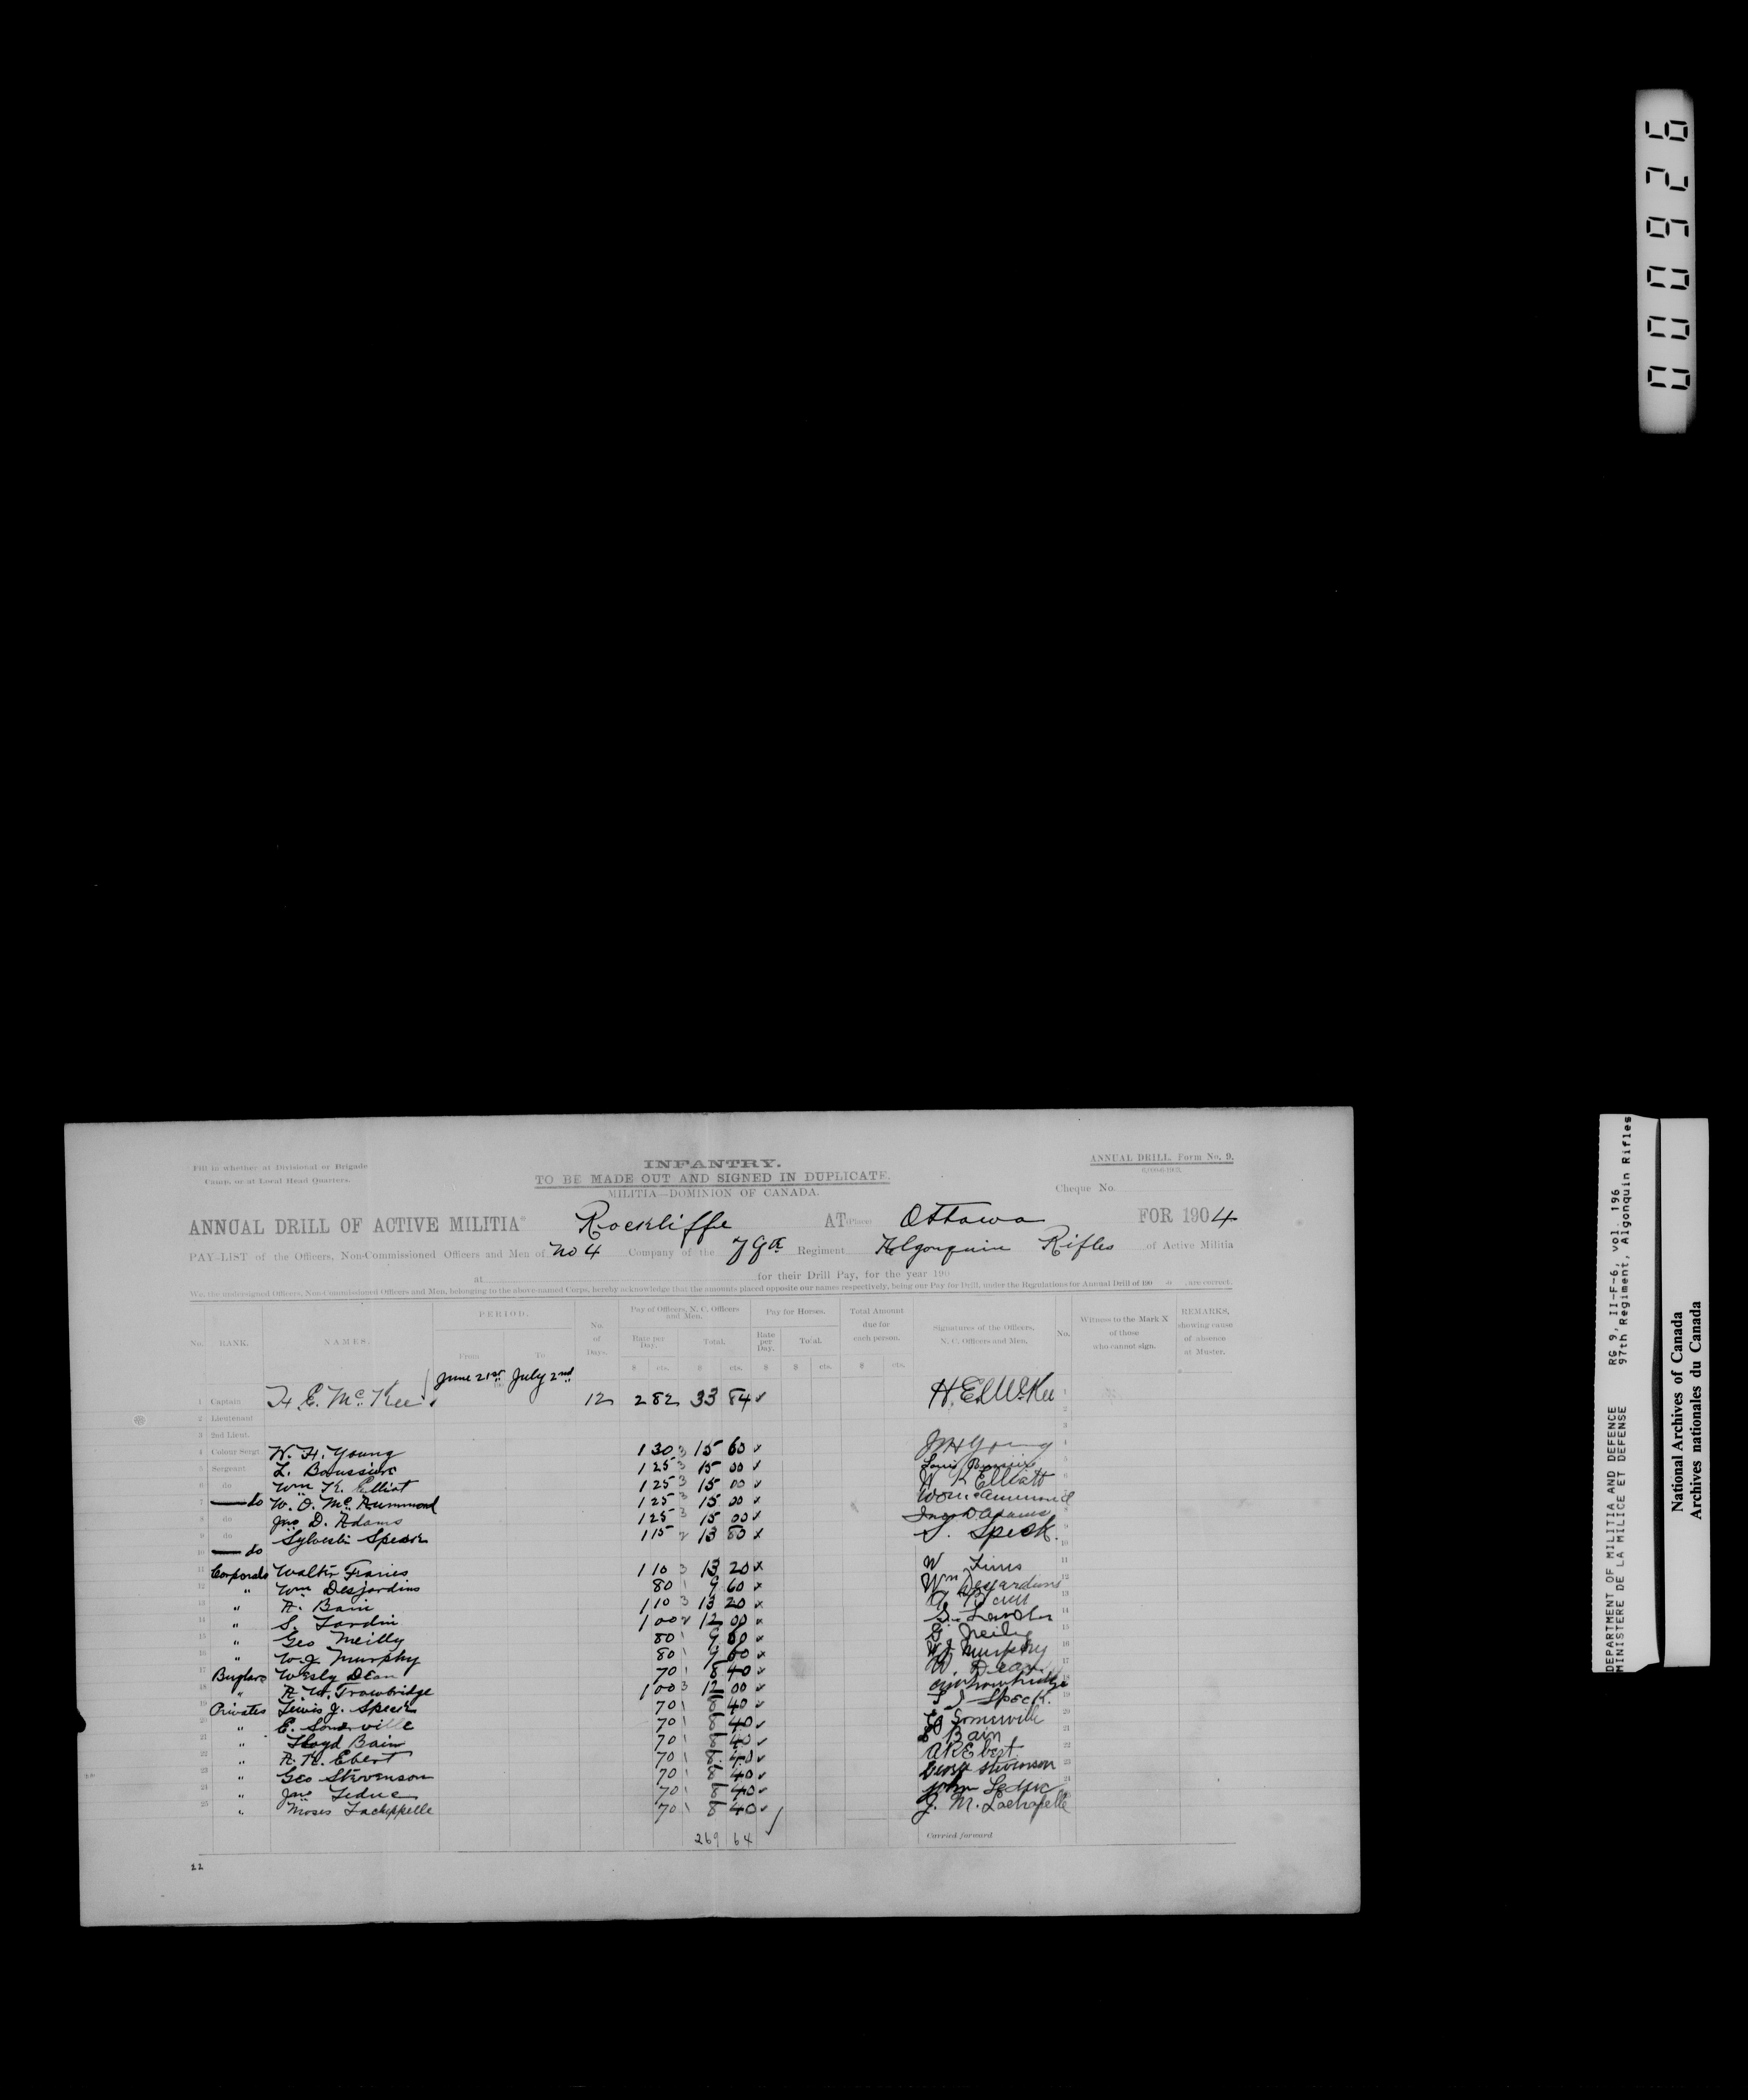 0000926
Fill in whether at Divisional or Brigade
Camp, or at Local Head Quarters.
INFANTRY.
TO BE MADE OUT AND SIGNED IN DUPLICATE.
MILITIA—DOMINION OF CANADA.
ANNUAL DRILL. Form No. 9.
Cheque No.
ANNUAL DRILL OF ACTIVE MILITIA Rockliffe AT (Place) Ottawa FOR 1904
PAY-LIST of the Officers, Non-Commissioned Officers and Men of No 4 Company of the Regiment Algonquin Rifles of Active Militia
at for their Drill Pay, for the year 190
We, the undersigned Officers, Non-Commissioned Officers and Men, belonging to the above-named Corps, hereby acknowledge that the amounts placed opposite our names respectively, being our Pay for Drill, under the Regulations for Annual Drill of 190 , are correct.
No. RANK. NAMES. PERIOD. From To No. of Days. Pay of Officers, N. C. Officers and Men. Rate per Day. Total. Pay for Horses. Rate per Day. Total. Total Amount due for each person. Signatures of the Officers, N. C. Officers and Men. No. Witness to the Mark X of those who cannot sign. REMARKS, showing cause of absence at Muster.
$ cts. $ cts. $ $ cts. $ cts.
June 21st July 2nd
1 Captain H. E. McKee 12 2 82 33 84 H. E. McKee 1
2 Lieutenant 2
3 2nd Lieut. 3
4 Colour Sergt. W. H. Young 1 30 3 15 60 W H Young 4
5 Sergeant L. 1 25 3 15 00 Louis 5
6 do Wm K. Elliot 1 25 3 15 00 W K Elliott 6
7 do W. O. 1 25 3 15 00 7
8 do Jno D. Adams 1 25 3 15 00 Jno D. Adams 8
9 do Sylvester Speck 1 15 2 13 80 S. Speck. 9
10 do 10
11 Corporals Walter 1 10 3 13 20 W 11
12 " Wm Desjardins 80 1 9 60 Wm Desjardins 12
13 " A. Bain 1 10 3 13 20 A. Bain 13
14 " S. 1 00 2 12 00 S. 14
15 " Geo Neilly 80 1 9 60 G. Neilly 15
16 " W. J. Murphy 80 1 9 60 W J Murphy 16
17 Buglars Wesly Dean 70 1 8 40 W. Dean 17
18 " A. W. Trowbridge 1 00 3 12 00 AW Trowbridge 18
19 Privates Lewis J. Speck 70 1 8 40 L J Speck. 19
20 " E. Somerville 70 1 8 40 E Somerville 20
21 " Lloyd Bain 70 1 8 40 L Bain 21
22 " A. R. Ebert 70 1 8 40 A R Ebert 22
23 " Geo Stevenson 70 1 8 40 George Stevenson 23
24 " Jno Leduc 70 1 8 40 John Leduc 24
25 " Moses Lachappelle 70 1 8 40 J. M. Lachapelle
269 64 Carried forward
22
DEPARTMENT OF MILITIA AND DEFENCE RG 9, II-F-6, vol. 196
MINISTERE DE LA MILICE ET DEFENSE 97th Regiment, Algonquin Rifles
National Archives of Canada
Archives nationales du Canada